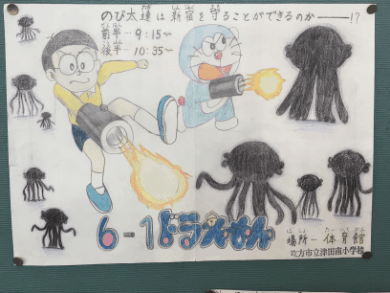 のび太達は新宿を守ることができるのか――!?
前半-9:15~
後半-10:35~
6-1ドラえもん
場所-体育館
枚方市立津田南小学校